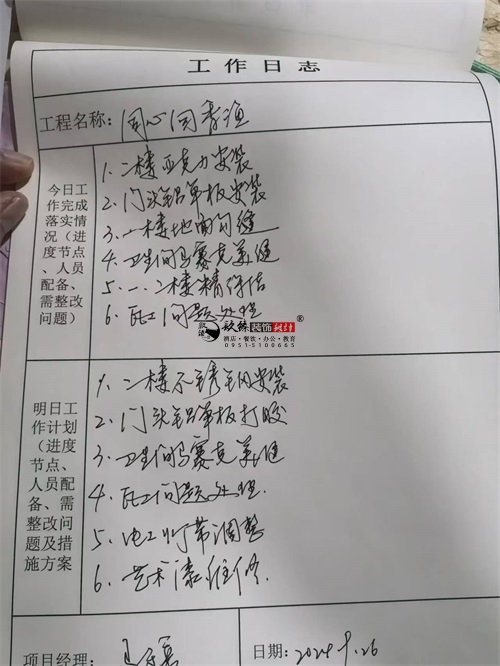 工作日志
工程名称: 同心同春渔
今日工作完成落实情况(进度节点、人员配备、需整改问题)
1. 二楼亚克力安装
2. 门头铝单板安装
3. 一楼地面勾缝
4. 卫生间马赛克美缝
5. 一.二楼精保洁
6. 瓦工问题处理
玖臻装饰设计®
酒店·餐饮·办公·教育
0951-5100665
明日工作计划(进度节点、人员配备、需整改问题及措施方案
1. 二楼不锈钢安装
2. 门头铝单板打胶
3. 卫生间马赛克美缝
4. 瓦工问题处理.
5. 电工灯带调整
6. 艺术漆维修.
项目经理:
日期: 2024.9.26